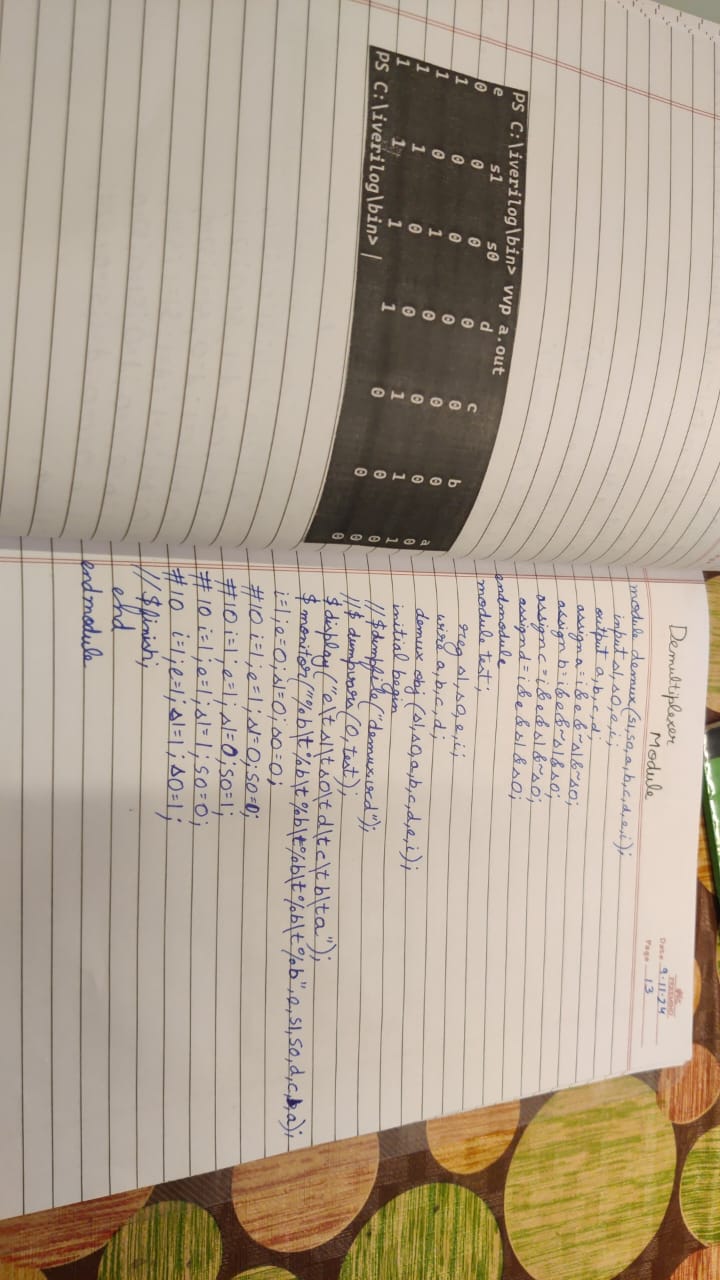 PS C:\iverilog\bin> vvp a.out
e s1 s0 d c b a
0 0 0 0 0 0 0
1 0 0 0 0 0 1
1 0 1 0 0 1 0
1 1 0 0 1 0 0
1 1 1 1 0 0 0
PS C:\iverilog\bin> |
Date 9-11-24
Page 13
Demultiplexer
Module
module demux(s1,s0,a,b,c,d,e,i);
input s1,s0,e,i;
output a,b,c,d;
assign a=i&e&~s1&~s0;
assign b=i&e&~s1&s0;
assign c=i&e&s1&~s0;
assign d=i&e&s1&s0;
endmodule
module test;
reg s1,s0,e,i;
wire a,b,c,d;
demux obj(s1,s0,a,b,c,d,e,i);
initial begin
//$dumpfile("demux.vcd");
//$dumpvars(0,test);
$display("e\t s1\t s0\t d\t c\t b\t a");
$monitor("%b\t%b\t%b\t%b\t%b\t%b\t%b",e,s1,s0,d,c,b,a);
i=1;e=0;s1=0;s0=0;
#10 i=1;e=1;s1=0;s0=0;
#10 i=1;e=1;s1=0;s0=1;
#10 i=1;e=1;s1=1;s0=0;
#10 i=1;e=1;s1=1;s0=1;
//$finish;
end
endmodule